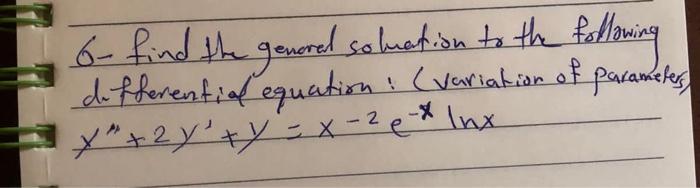 6- find the general soluation to the following
differential equation : (variation of parameters)
y'' + 2y' + y = x⁻² e⁻ˣ lnx